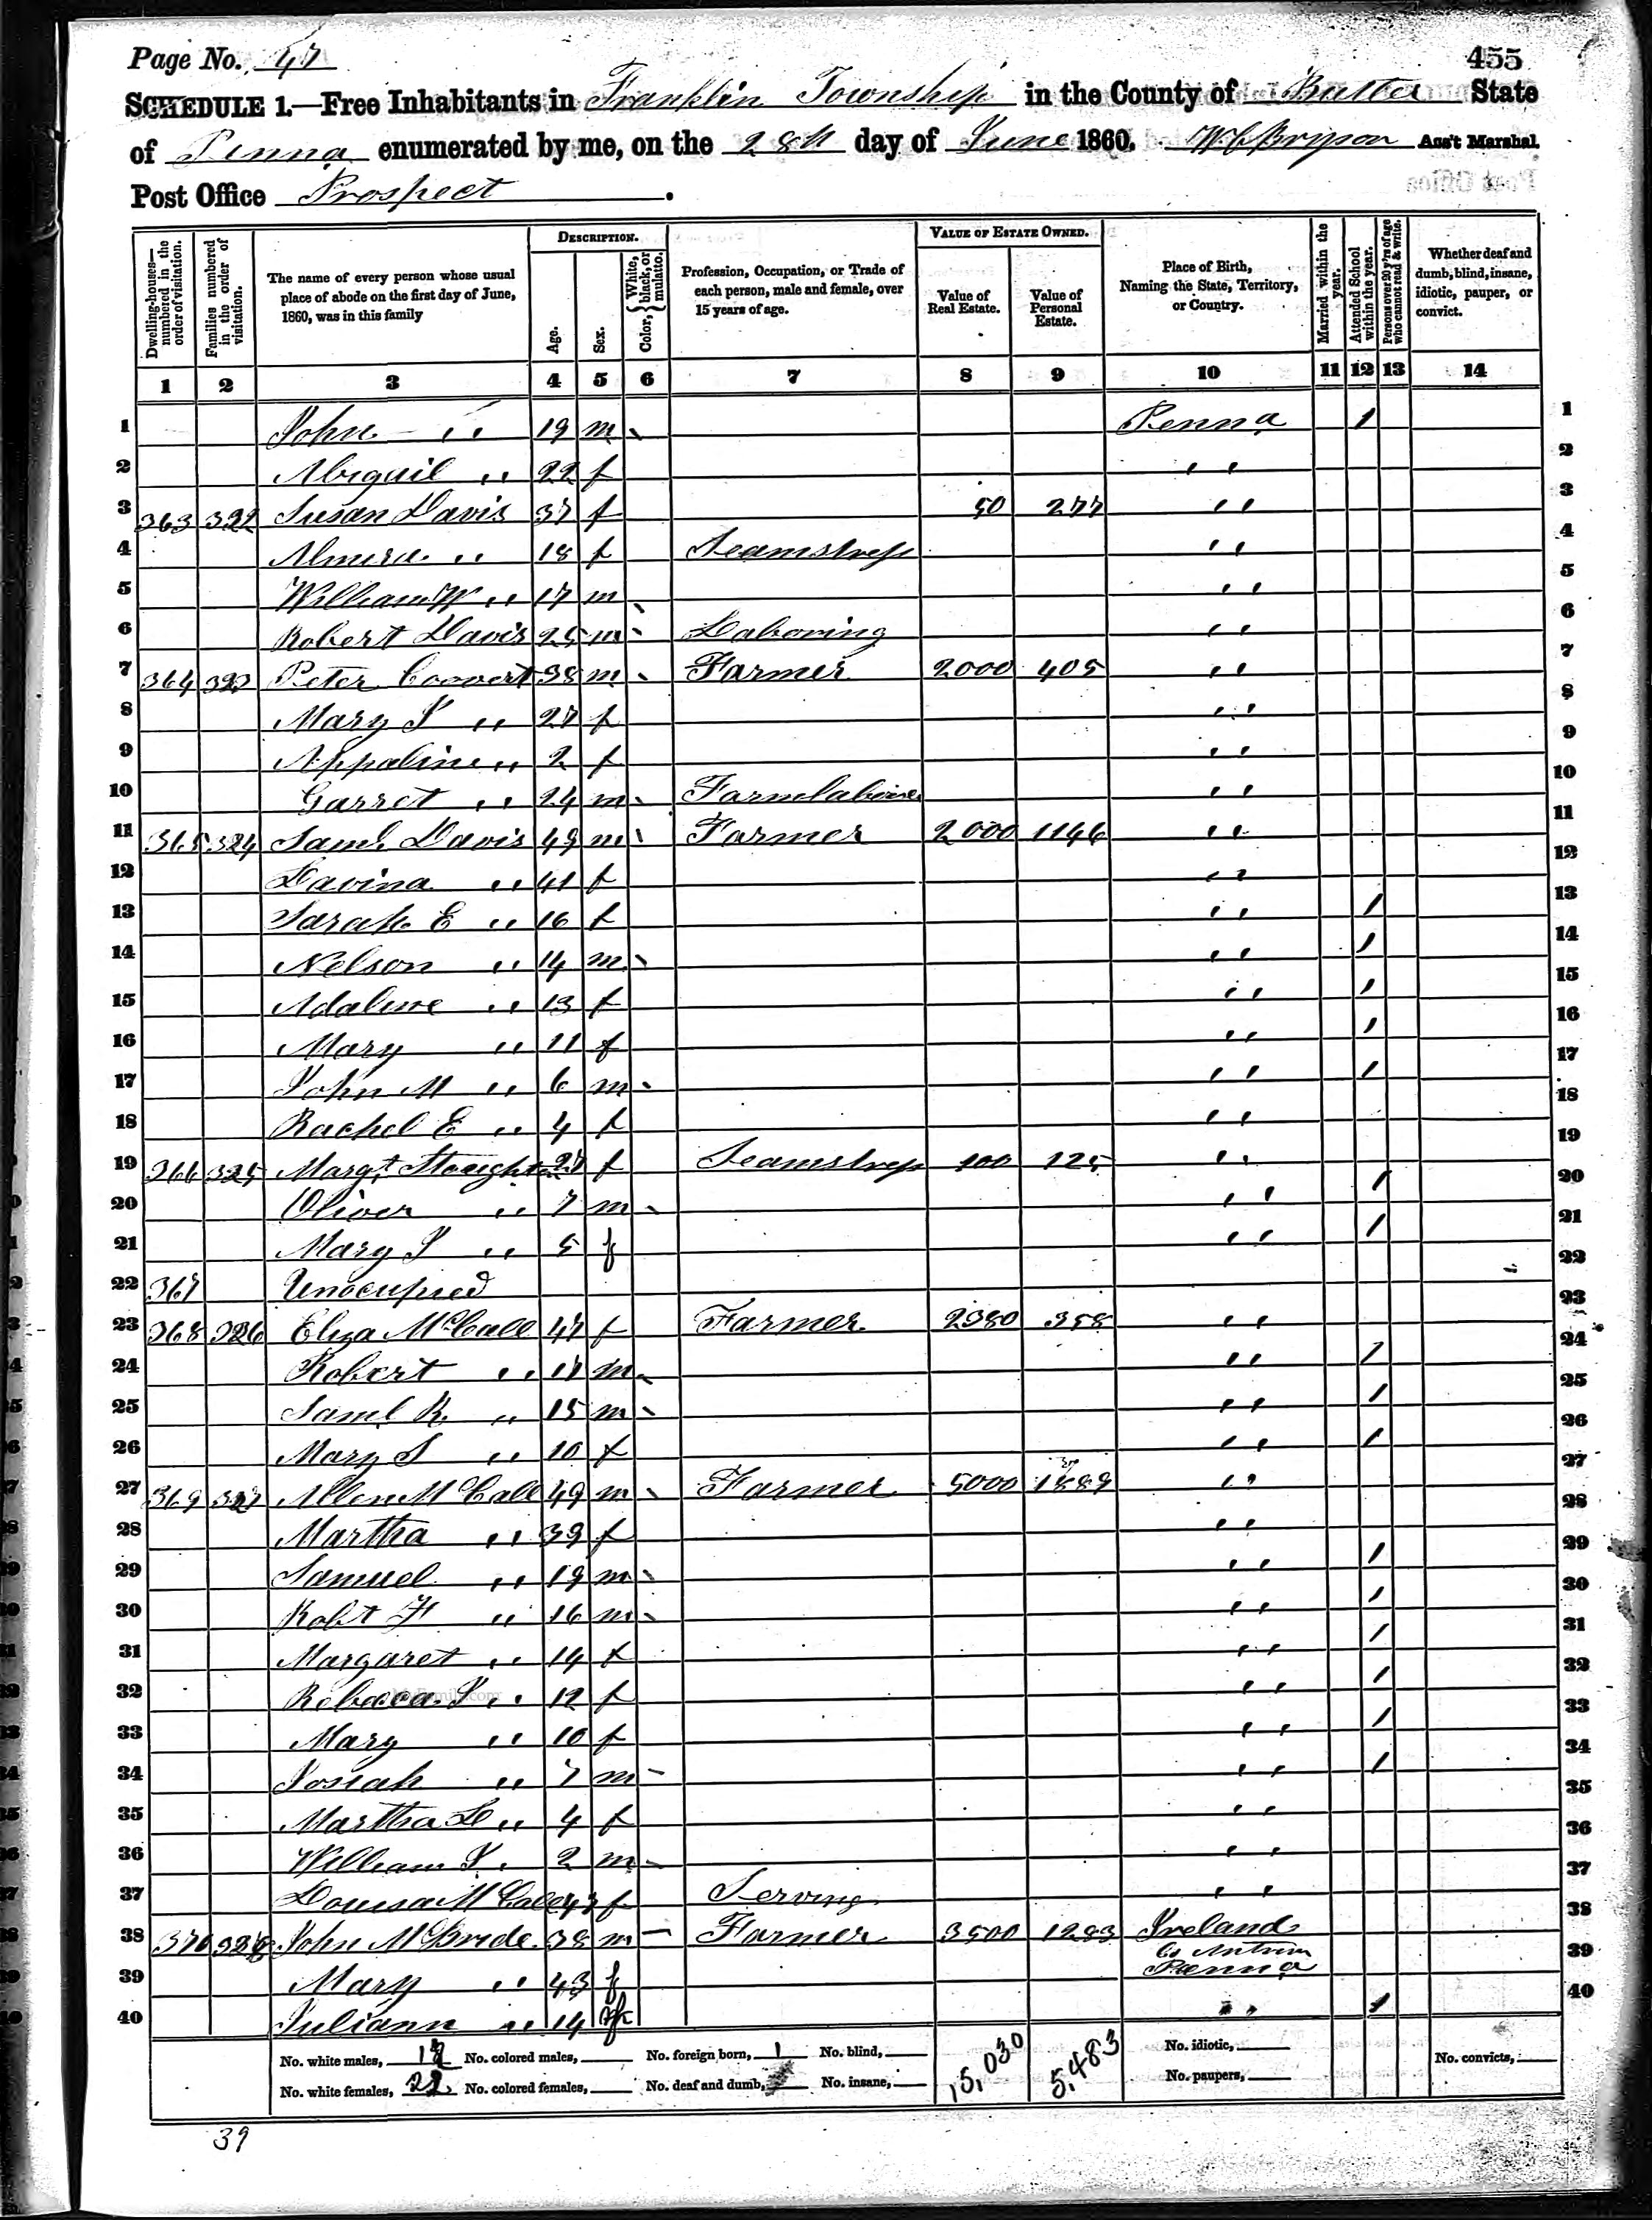 Page No. 47
455
SCHEDULE 1.—Free Inhabitants in Franklin Township in the County of Butler State
of Penna enumerated by me, on the 28th day of June 1860. Ass't Marshal.
Post Office Prospect.
Dwelling-houses—numbered in the order of visitation.
Families numbered in the order of visitation.
The name of every person whose usual place of abode on the first day of June, 1860, was in this family
DESCRIPTION.
Age.
Sex.
Color, { White, black, or mulatto.
Profession, Occupation, or Trade of each person, male and female, over 15 years of age.
VALUE OF ESTATE OWNED.
Value of Real Estate.
Value of Personal Estate.
Place of Birth, Naming the State, Territory, or Country.
Married within the year.
Attended School within the year.
Persons over 20 y'rs of age who cannot read & write.
Whether deaf and dumb, blind, insane, idiotic, pauper, or convict.
1 2 3 4 5 6 7 8 9 10 11 12 13 14
1 John " 19 m Penna / 1
2 Abigail " 22 f " 2
3 363 322 Susan Davis 37 f 50 277 " 3
4 Almira " 18 f Seamstress " 4
5 William W " 17 m " 5
6 Robert Davis 25 m Laboring " 6
7 364 323 Peter Coovert 38 m Farmer 2000 405 " 7
8 Mary J " 27 f " 8
9 Appaline " 2 f " 9
10 Garret " 24 m Farmlaborer " 10
11 365 324 Saml Davis 49 m Farmer 2000 1146 " 11
12 Lavina " 41 f " 12
13 Sarah E " 16 f " / 13
14 Nelson " 14 m " / 14
15 Adaline " 13 f " / 15
16 Mary " 11 f " / 16
17 John M " 6 m " / 17
18 Rachel E " 4 f " 18
19 366 325 Margt 27 f Seamstress 100 125 " 19
20 Oliver " 7 m " / 20
21 Mary J " 5 f " / 21
22 367 Unocupied 22
23 368 326 Eliza McCall 47 f Farmer 2380 358 " 23
24 Robert " 17 m " / 24
25 Saml R. " 15 m " / 25
26 Mary S " 10 f " / 26
27 369 327 Allen McCall 49 m Farmer 5000 1889 " 27
28 Martha " 39 f " 28
29 Samuel " 19 m " / 29
30 Robt F " 16 m " / 30
31 Margaret " 14 f " / 31
32 Rebecca J " 12 f " / 32
33 Mary " 10 f " / 33
34 Josiah " 7 m " / 34
35 Martha L " 4 f " 35
36 William J " 2 m " 36
37 Louisa McCall 43 f Serving " 37
38 370 328 John McBride 38 m Farmer 3500 1283 Ireland 38
Co Antrim
39 Mary " 43 f Penna 39
40 Juliann " 14 f " / 40
No. white males, No. colored males, No. foreign born, 1 No. blind, 15,030 5,483 No. idiotic, No. convicts,
No. white females, 22 No. colored females, No. deaf and dumb, No. insane, No. paupers,
39